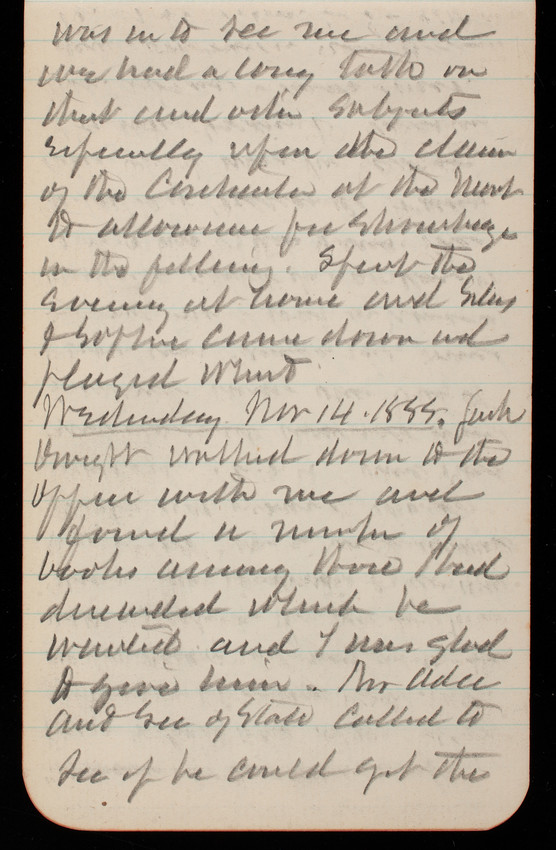 was in to see me and
we had a long talk on
that and other subjects
especially upon the claim
of the Contractor at the
to allowance for
in the . Spent the
evening at home and
& Sophie came down and
played Whist
Wednesday Nov 14. 1888. Jack
Dwight walked down to the
office with me and
found a number of
books among those I had
discarded which he
wanted and I was glad
to give him. Mr Adee
Asst Sec of State called to
see if he could get the